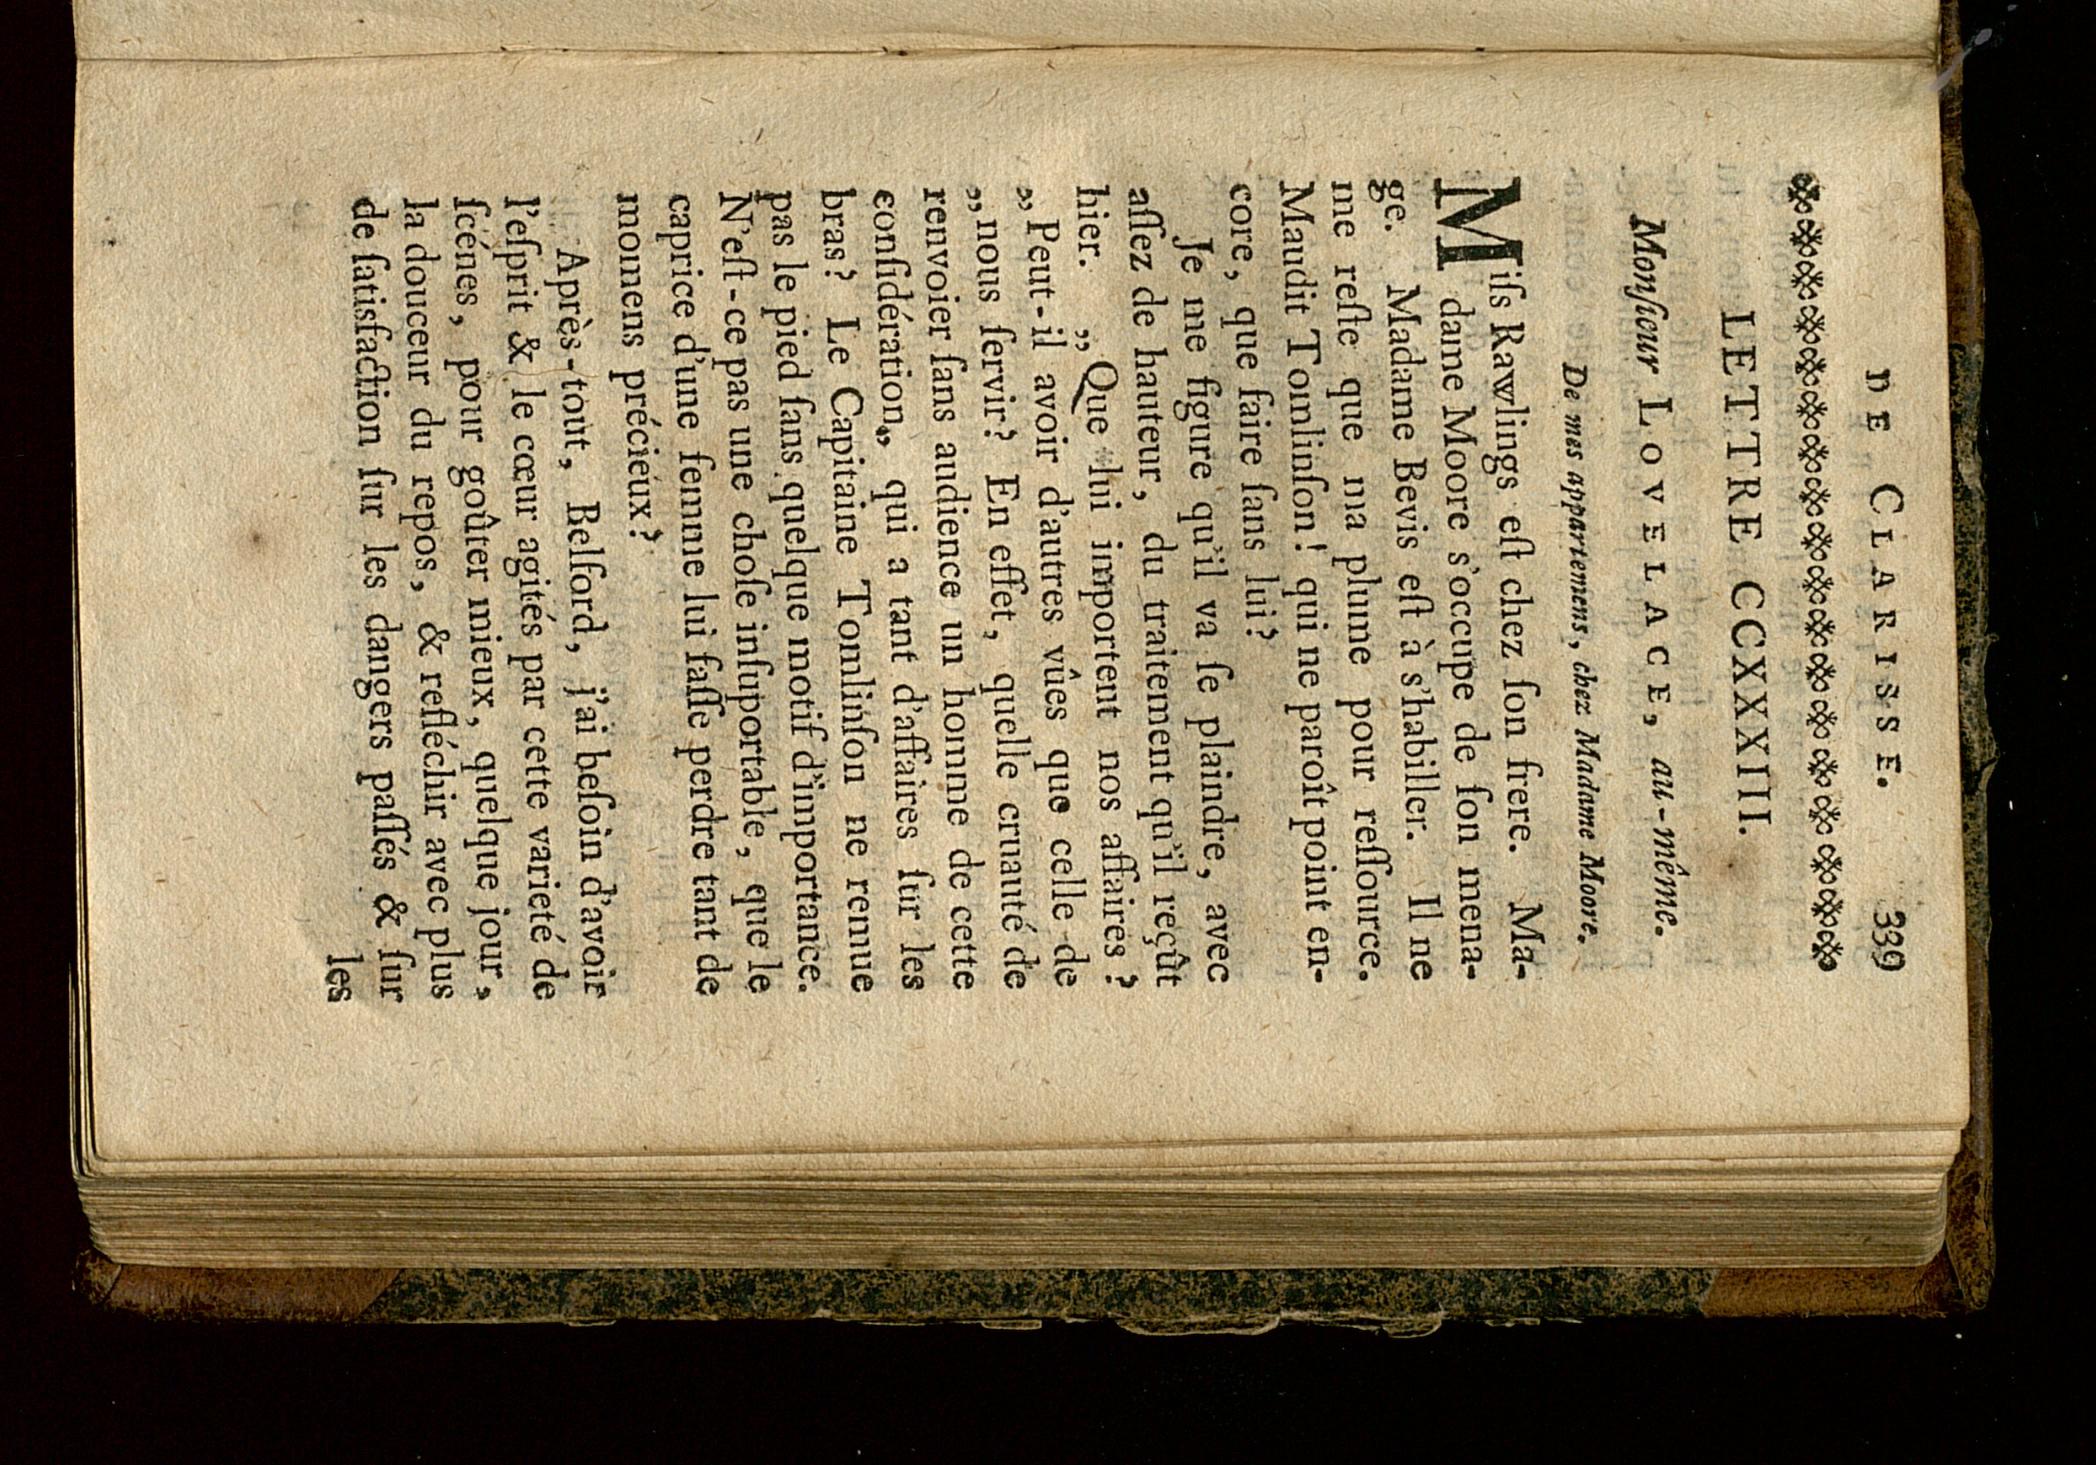 DE CLARISSE. 339
LETTRE CCXXXIII.
Monſieur LOVELACE, au-même.
De mes appartemens, chez Madame Moore.
Miſs Rawlings eſt chez ſon frere. Ma-
dame Moore s'occupe de ſon mena-
ge. Madame Bevis eſt à s'habiller. Il ne
me reſte que ma plume pour reſſource.
Maudit Tomlinſon! qui ne paroît point en-
core, que faire ſans lui?
Je me figure qu'il va ſe plaindre, avec
aſſez de hauteur, du traitement qu'il reçût
hier. „Que lui importent nos affaires?
„Peut-il avoir d'autres vûes que celle de
„nous ſervir? En effet, quelle cruauté de
renvoier ſans audience un homme de cette
conſidération„ qui a tant d'affaires ſur les
bras? Le Capitaine Tomlinſon ne remue
pas le pied ſans quelque motif d'importance.
N'eſt-ce pas une choſe inſuportable, que le
caprice d'une femme lui faſſe perdre tant de
momens précieux?
Après-tout, Belford, j'ai beſoin d'avoir
l'eſprit & le cœur agités par cette varieté de
ſcénes, pour goûter mieux, quelque jour,
la douceur du repos, & refléchir avec plus
de ſatisfaction ſur les dangers paſſés & ſur
les